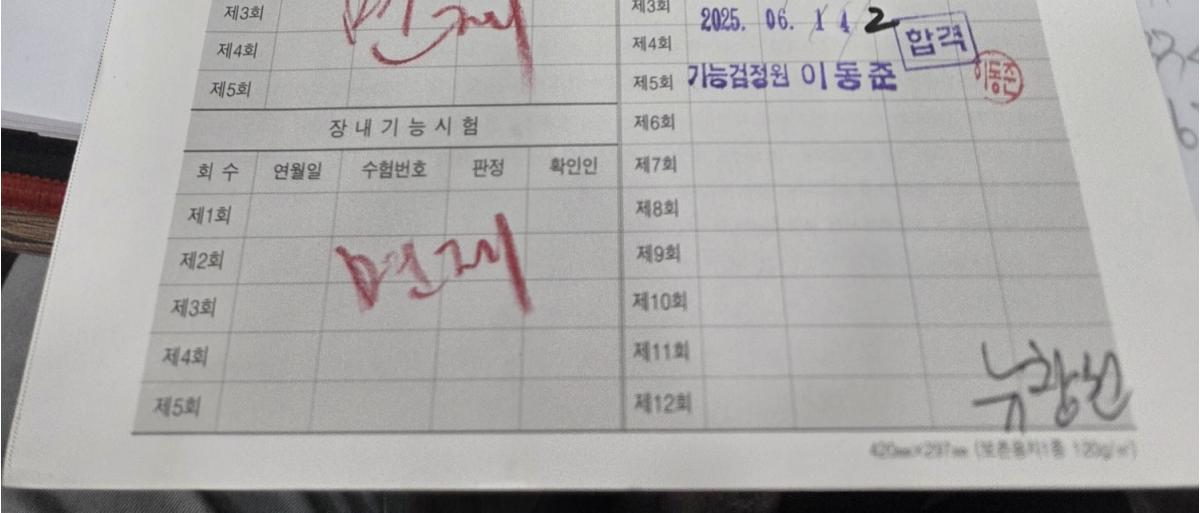 제3회
제4회
제5회
면제
장내기능시험
회 수 연월일 수험번호 판정 확인인
제1회
제2회
제3회
제4회
제5회
면제
제3회
2025. 06. 1 4 2
합격
제4회
제5회
기능검정원 이동준
이동준
제6회
제7회
제8회
제9회
제10회
제11회
제12회
420㎜×297㎜ (보존용지1종 120g/㎡)